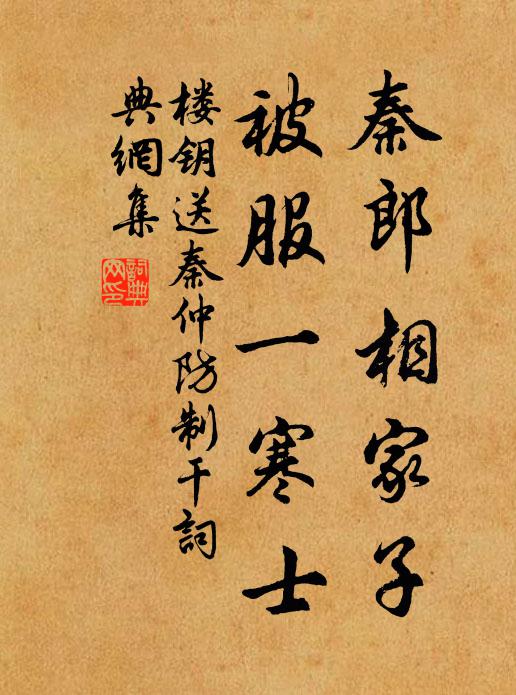 秦郎相家子
被服一寒士
楼钥送秦仲防制干詞
典網集
詞典
网印